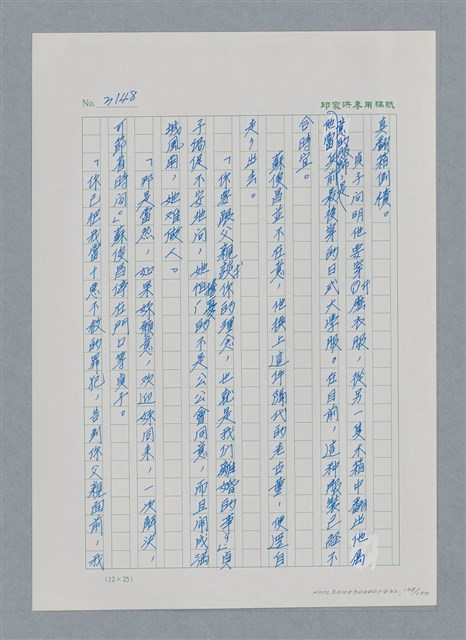 No. 3148
邱家洪專用稿紙
具翻箱倒櫃。
貞子問明他要穿什麼衣服，從另一隻木箱中翻出他舊
他當年前最後穿的日式大學服。在目前，這种服裝已經不
合時宜。
蘇俊昌並不在意，他換上這件隔代的老古董，便逕自
走，出去。
「你要跟父親談你的理念，也就是我們離婚的事？」貞
子侷促不安地问，她怕的不是公公會同意，而且鬧成滿
城風雨，她难做人。
「那是當然，如果妳願意，欢迎妳同来，一次解決，
可節省時间。」蘇俊昌停在門口等貞子。
「你已把我當十惡不赦的罪犯，告到你父親面前，我
(12×25)